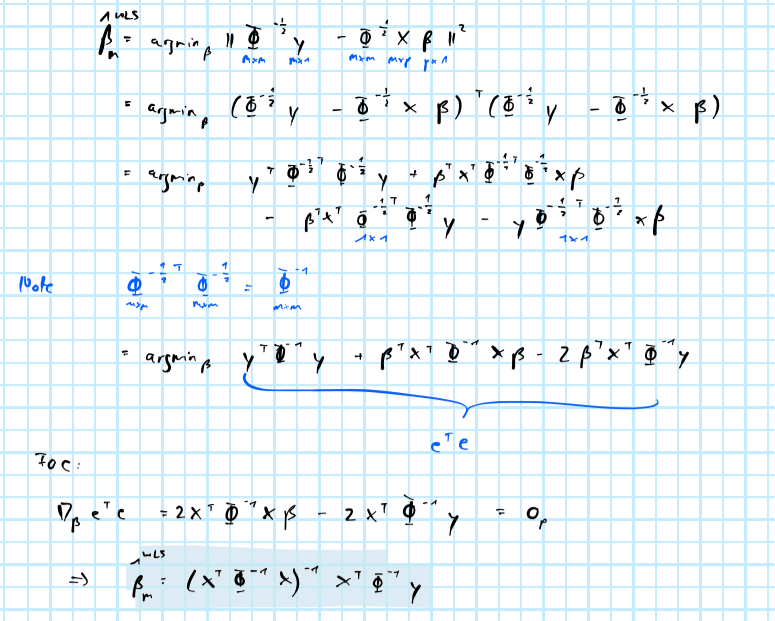 β̂ₘᵂᴸˢ = argmin_β ‖ Φ^{-1/2} y - Φ^{-1/2} X β ‖²
m×m m×1 m×m m×p p×1
= argmin_β (Φ^{-1/2} y - Φ^{-1/2} X β)ᵀ (Φ^{-1/2} y - Φ^{-1/2} X β)
= argmin_β yᵀ Φ^{-1/2 ᵀ} Φ^{-1/2} y + βᵀ Xᵀ Φ^{-1/2 ᵀ} Φ^{-1/2} X β
- βᵀ Xᵀ Φ^{-1/2 ᵀ} Φ^{-1/2} y - y Φ^{-1/2 ᵀ} Φ^{-1/2} X β
1×1 1×1
Note Φ^{-1/2 ᵀ} Φ^{-1/2} = Φ^{-1}
m×m m×m m×m
= argmin_β yᵀ Φ^{-1} y + βᵀ Xᵀ Φ^{-1} X β - 2 βᵀ Xᵀ Φ^{-1} y
eᵀe
FOC:
∇_β eᵀe = 2 Xᵀ Φ^{-1} X β - 2 Xᵀ Φ^{-1} y = 0ₚ
⇒ β̂ₘᵂᴸˢ = (Xᵀ Φ^{-1} X)^{-1} Xᵀ Φ^{-1} y